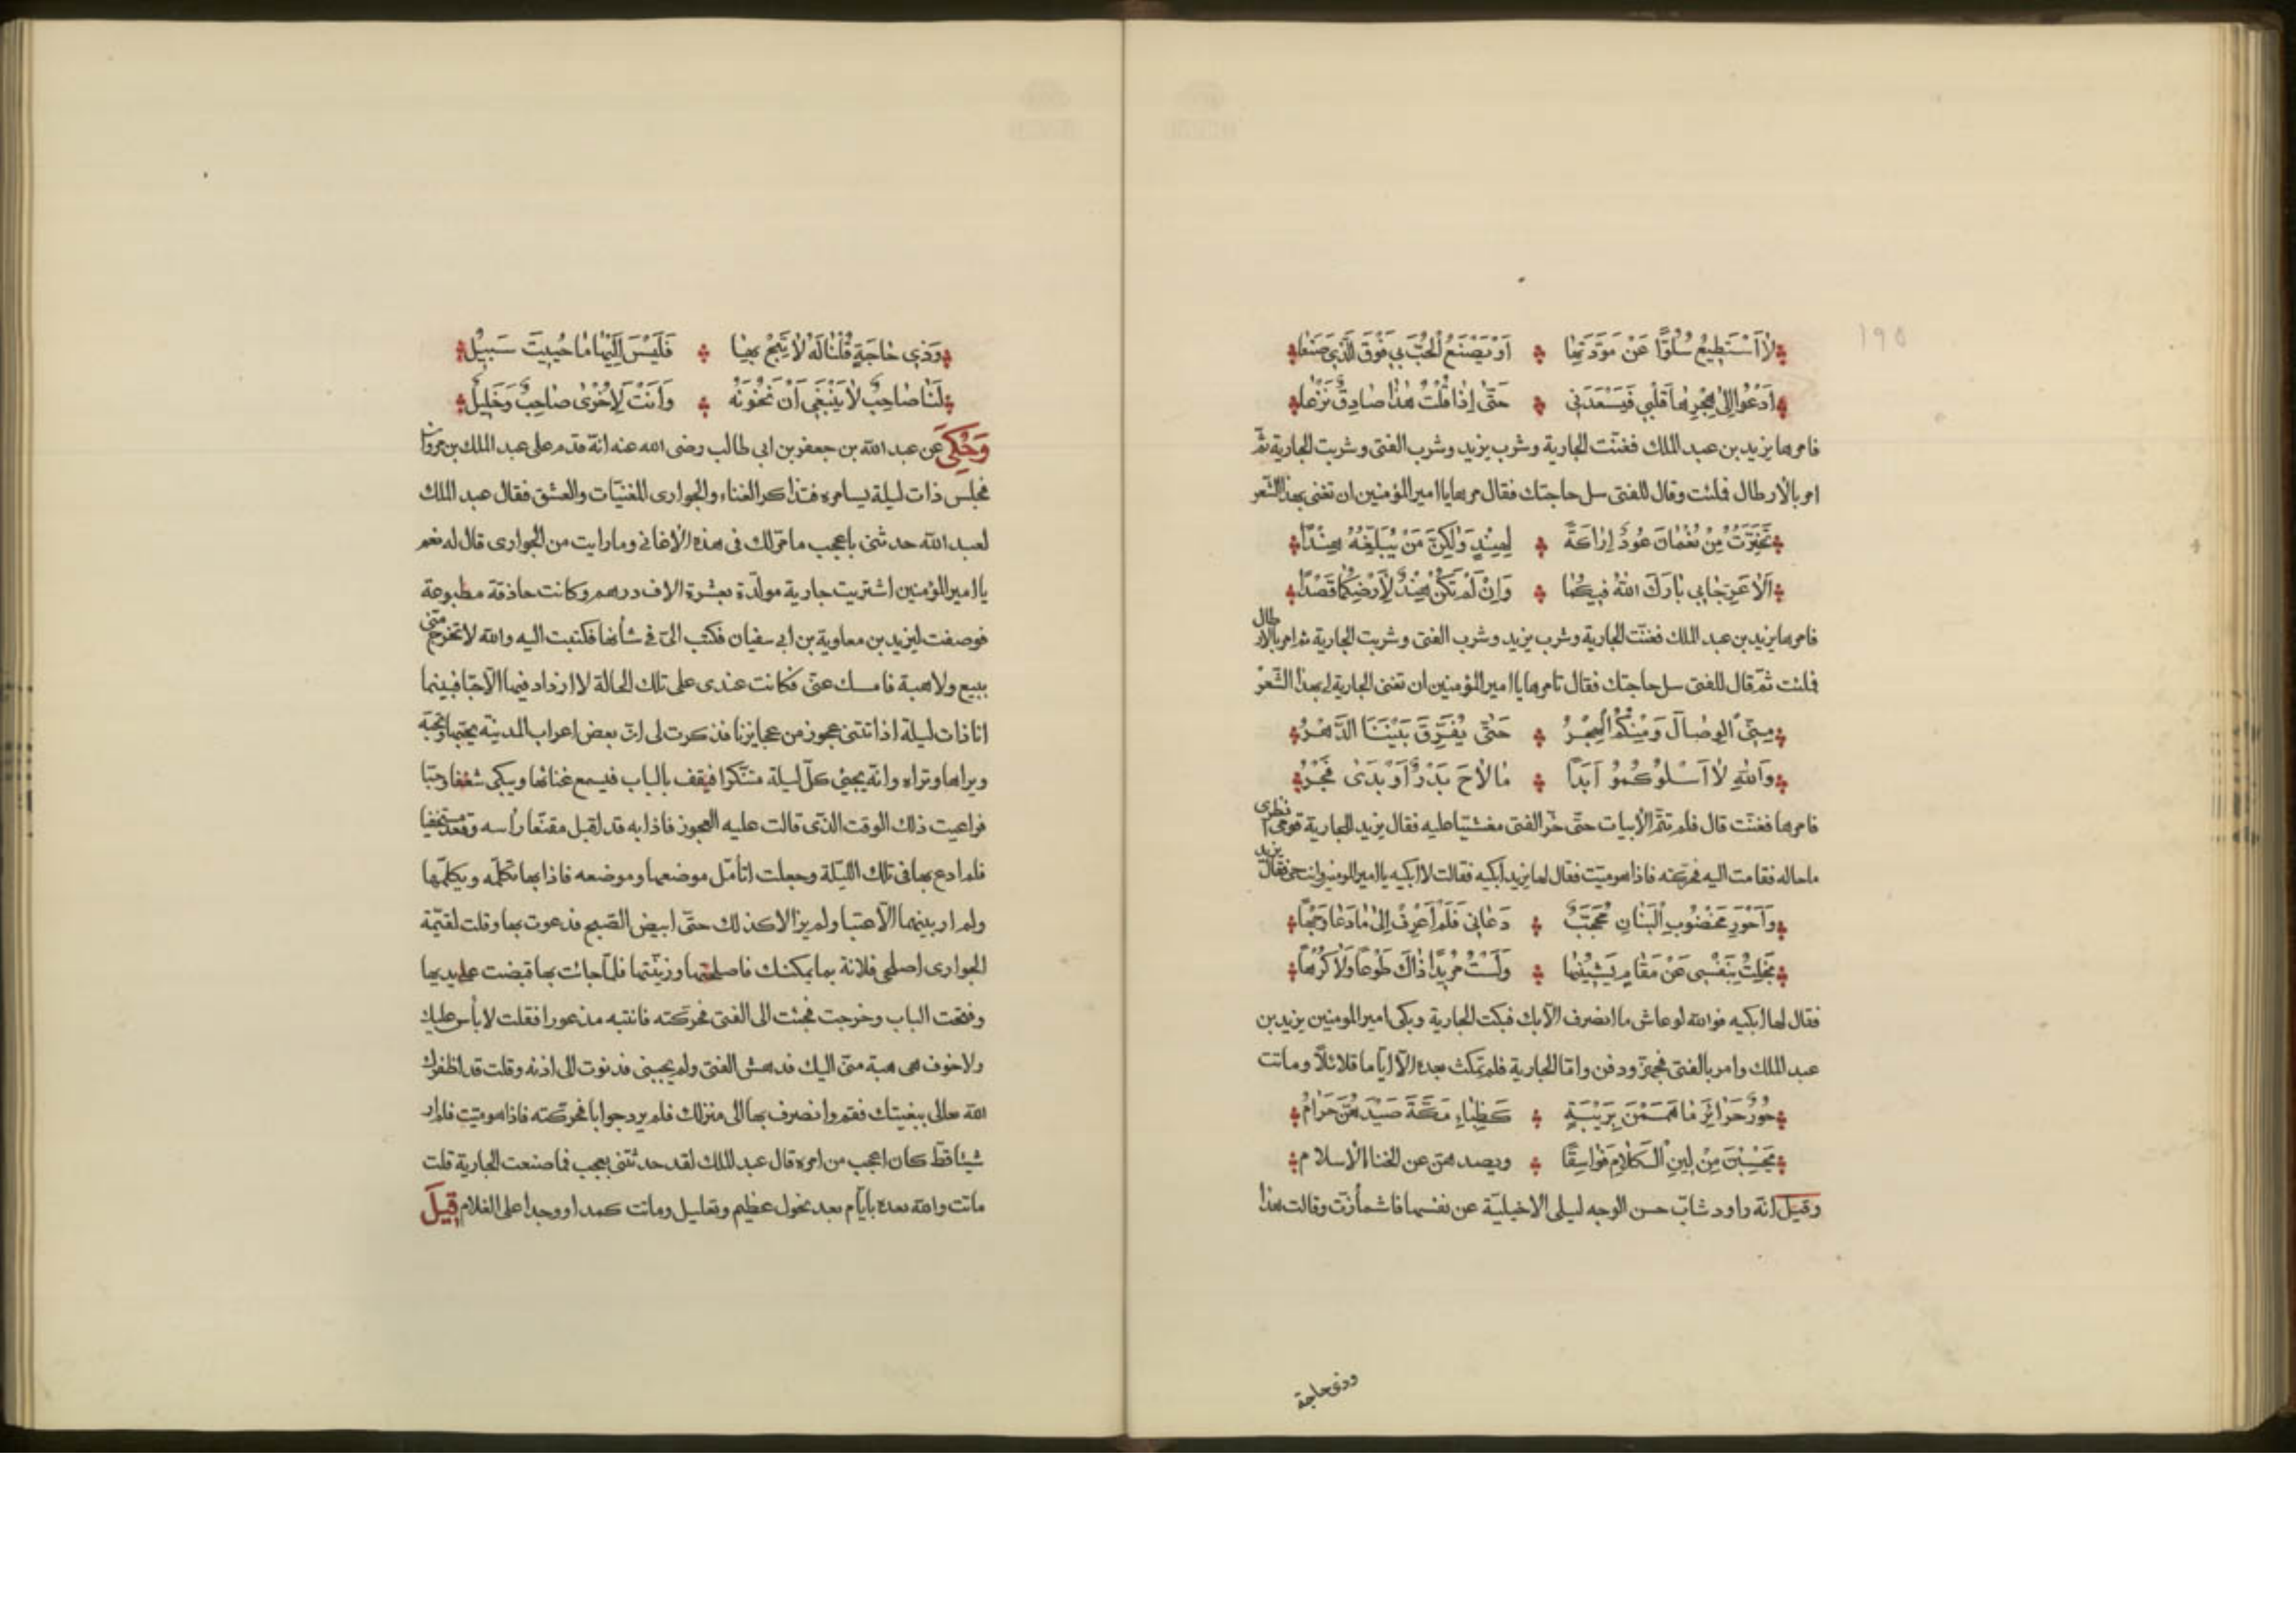 ١٩٥
لا أَسْتَطِيعُ سُلُوًّا عَنْ مَوَدَّتِهَا أَوْ يَصْنَعُ الْحُبُّ بِي فَوْقَ الَّذِي صَنَعَا
أَدْعُوا إِلَى هَجْرِهَا قَلْبِي فَيَسْعَدَنِي حَتَّى إِذَا قُلْتُ هٰذَا صَادِقٌ نَزَعَا
فامرها يزيد بن عبد الملك فغنّت الجارية وشرب يزيد وشرب الفتى وشربت الجارية ثمّ
امر بالارطال فملئت وقال للفتى سل حاجتك فقال مرها يا امير المؤمنين ان تغنى بهذا الشّعر
تَخَيَّرْتُ مِنْ نُعْمَانَ عُودَ اِرَاكَةٍ لِهِنْدٍ وَلٰكِنْ مَنْ يُبَلِّغُهُ هِنْدًا
اَلَا عَرِّجَا بِي بَارَكَ اللهُ فِيكُمَا وَاِنْ لَمْ تَكُنْ هِنْدٌ لِأَرْضِكُمَا قَصْدًا
فامرها يزيد بن عبد الملك فغنّت الجارية وشرب يزيد وشرب الفتى وشربت الجارية ثم امر بالارطال
فملئت ثمّ قال للفتى سل حاجتك فقال تامرها يا امير المؤمنين ان تغنى الجارية لى بهذا الشّعر
مِنِّي الوِصَالَ وَمِنْكُمُ الْهَجْرُ حَتَّى يُفَرِّقَ بَيْنَنَا الدَّهْرُ
وَاللهِ لَا اَسْلُوكُمُو اَبَدًا مَا لَاحَ بَدْرٌ اَوْ بَدَى فَجْرُ
فامرها فغنّت قال فلم تتمّ الأبيات حتّى خرّ الفتى مغشيّا عليه فقال يزيد للجارية قومى انظرى
ماحاله فقامت اليه فحرّكته فاذا هو ميّت فقال لها يزيد ابكيه فقالت لا ابكيه يا امير المومنين وانت حىّ فقال يزيد
وَاَحْوَرِ مَخْضُوبِ الْبَنَانِ مُحَجَّبٌ دَعَانِي فَلَمْ اَعْرِفْ اِلَى مَا دَعَا وَجْهًا
بَخِلْتُ بِنَفْسِي عَنْ مَقَامٍ يَشِينُهَا وَلَسْتُ مُرِيدًا ذَاكَ طَوْعًا وَلَا كَرْهًا
فقال لها ابكيه فوالله لو عاش ما انصرف الّا بك فبكت الجارية وبكى امير المومنين يزيد بن
عبد الملك وامر بالفتى فجهّز ودفن وامّا الجارية فلم تمكث بعده الّا ايّاما قلائلًا وماتت
حُورٌ حَرَائِرُ مَا هَمَمْنَ بِرَيْبَةٍ كَظِبَاءِ مَكَّةَ صَيْدُهُنَّ حَرَامٌ
يُحْسَبْنَ مِنْ لِينِ الْكَلَامِ فَوَاسِقًا ويصدهنّ عن الخنا الأسلام
وقيل انّه راود شابّ حسن الوجه ليلى الاخيليّة عن نفسها فاشمأزّت وقالت هذا
وذى حاجة
وَذِي حَاجَةٍ قُلْنَا لَهُ لَا تَبُحْ بِهَا فَلَيْسَ اِلَيْهَا مَا حَيِيتَ سَبِيلٌ
لَنَا صَاحِبٌ لَا يَنْبَغِي اَنْ نَخُونَهُ وَاَنْتَ لِاُخْرَى صَاحِبٌ وَخَلِيلٌ
وَحُكِيَ عن عبد الله بن جعفر بن ابى طالب رضى الله عنه انّه قدم على عبد الملك بن مروان
فجلس ذات ليلة يسامره فتذاكر الغناء والجوارى المغنيّات والعشق فقال عبد الملك
لعبد الله حدثنى باعجب ما مرّ لك فى هذه الاغانى وما رايت من الجوارى قال له نعم
يا امير المؤمنين اشتريت جارية مولّدة بعشرة الاف درهم وكانت حاذقة مطبوعة
فوصفت ليزيد بن معاوية بن ابى سفيان فكتب الىّ فى شأنها فكتبت اليه والله لا تخرج منّى
ببيع ولا هبة فامسك عنّى فكانت عندى على تلك الحالة لا ازداد فيها الّا حبّا فبينما
انا ذات ليلة اذ اتتنى عجوز من عجايزنا فذكرت لى انّ بعض اعراب المدينة يحبّها وتحبّه
ويراها وتراه وانّه يجئ كلّ ليلة متنكّرا فيقف بالباب فيسمع غنائها ويبكى شغفا وحبّا
فراعيت ذلك الوقت الذّى قالت عليه العجوز فاذا به قد اقبل مقنّعا رأسه وقعد مستخفيا
فلم ادع بها فى تلك اللّيلة وجعلت اتأمّل موضعها وموضعه فاذا بها تكلّمه ويكلّمها
ولم ار بينهما الّا عتبا ولم يزالا كذلك حتّى ابيض الصّبح فدعوت بها وقلت لقيّمة
الجوارى اصلحى فلانة بما يمكنك فاصلحتها وزيّنتها فلمّا جائت بها قبضت على يديها
وفتحت الباب وخرجت فجئت الى الفتى فحرّكته فانتبه مذعورا فقلت لا بأس عليك
ولا خوف هى هبة منّى اليك فدهش الفتى ولم يجبنى فدنوت الى اذنه وقلت قد اظفرك
الله تعالى ببغيتك فقم وانصرف بها الى منزلك فلم يرد جوابا فحرّكته فاذا هو ميّت فلم ار
شيئا قطّ كان اعجب من امره قال عبد الملك لقد حدثتنى بعجب فما صنعت الجارية قلت
ماتت والله بعده بايّام بعد نحول عظيم وتعليل وماتت كمدا ووجدا على الغلام قِيلَ